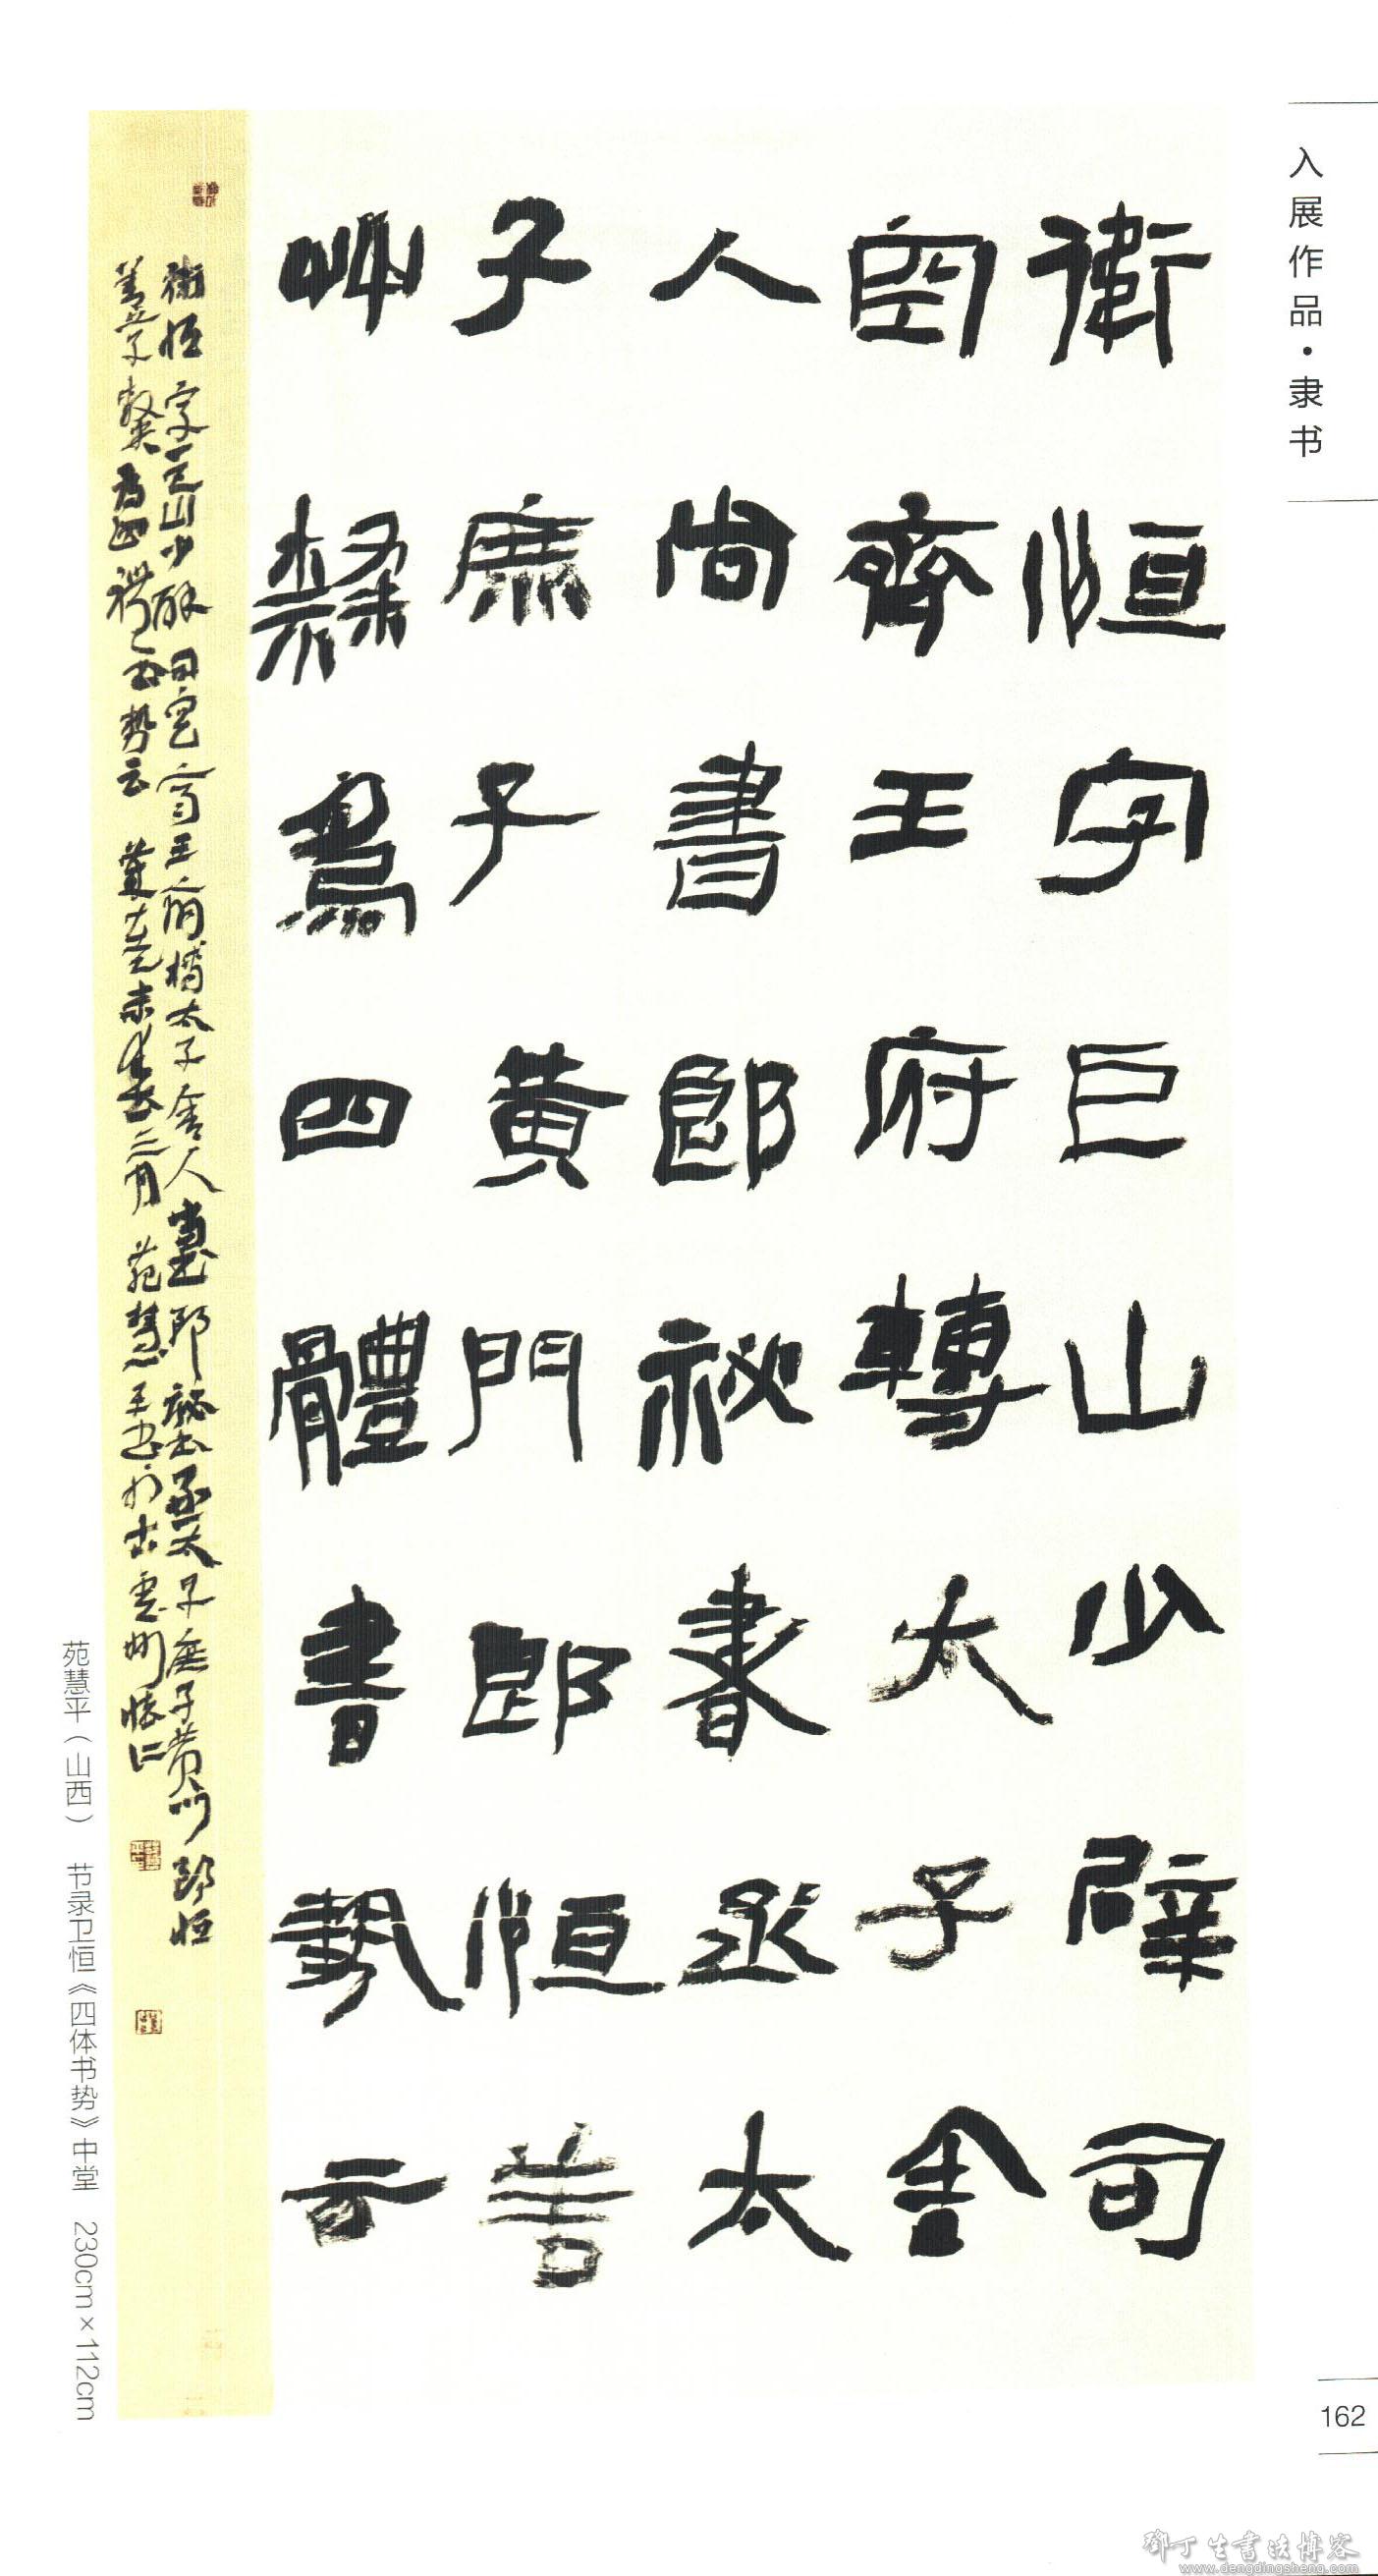 入展作品·隶书
衛恒字巨山少辟司
空齊王府轉太子舍
人尚書郎祕書丞太
子庶子黃門郎恒善
艸隸爲四體書勢云
衛恒字巨山少辟司空齊王府轉太子舍人尚書郎祕書丞太子庶子黃門郎恒
善草隸爲四體書勢云
苑慧平（山西） 节录卫恒《四体书势》中堂 230cm×112cm
162
鄧丁生書法博客
www.dengdingsheng.com